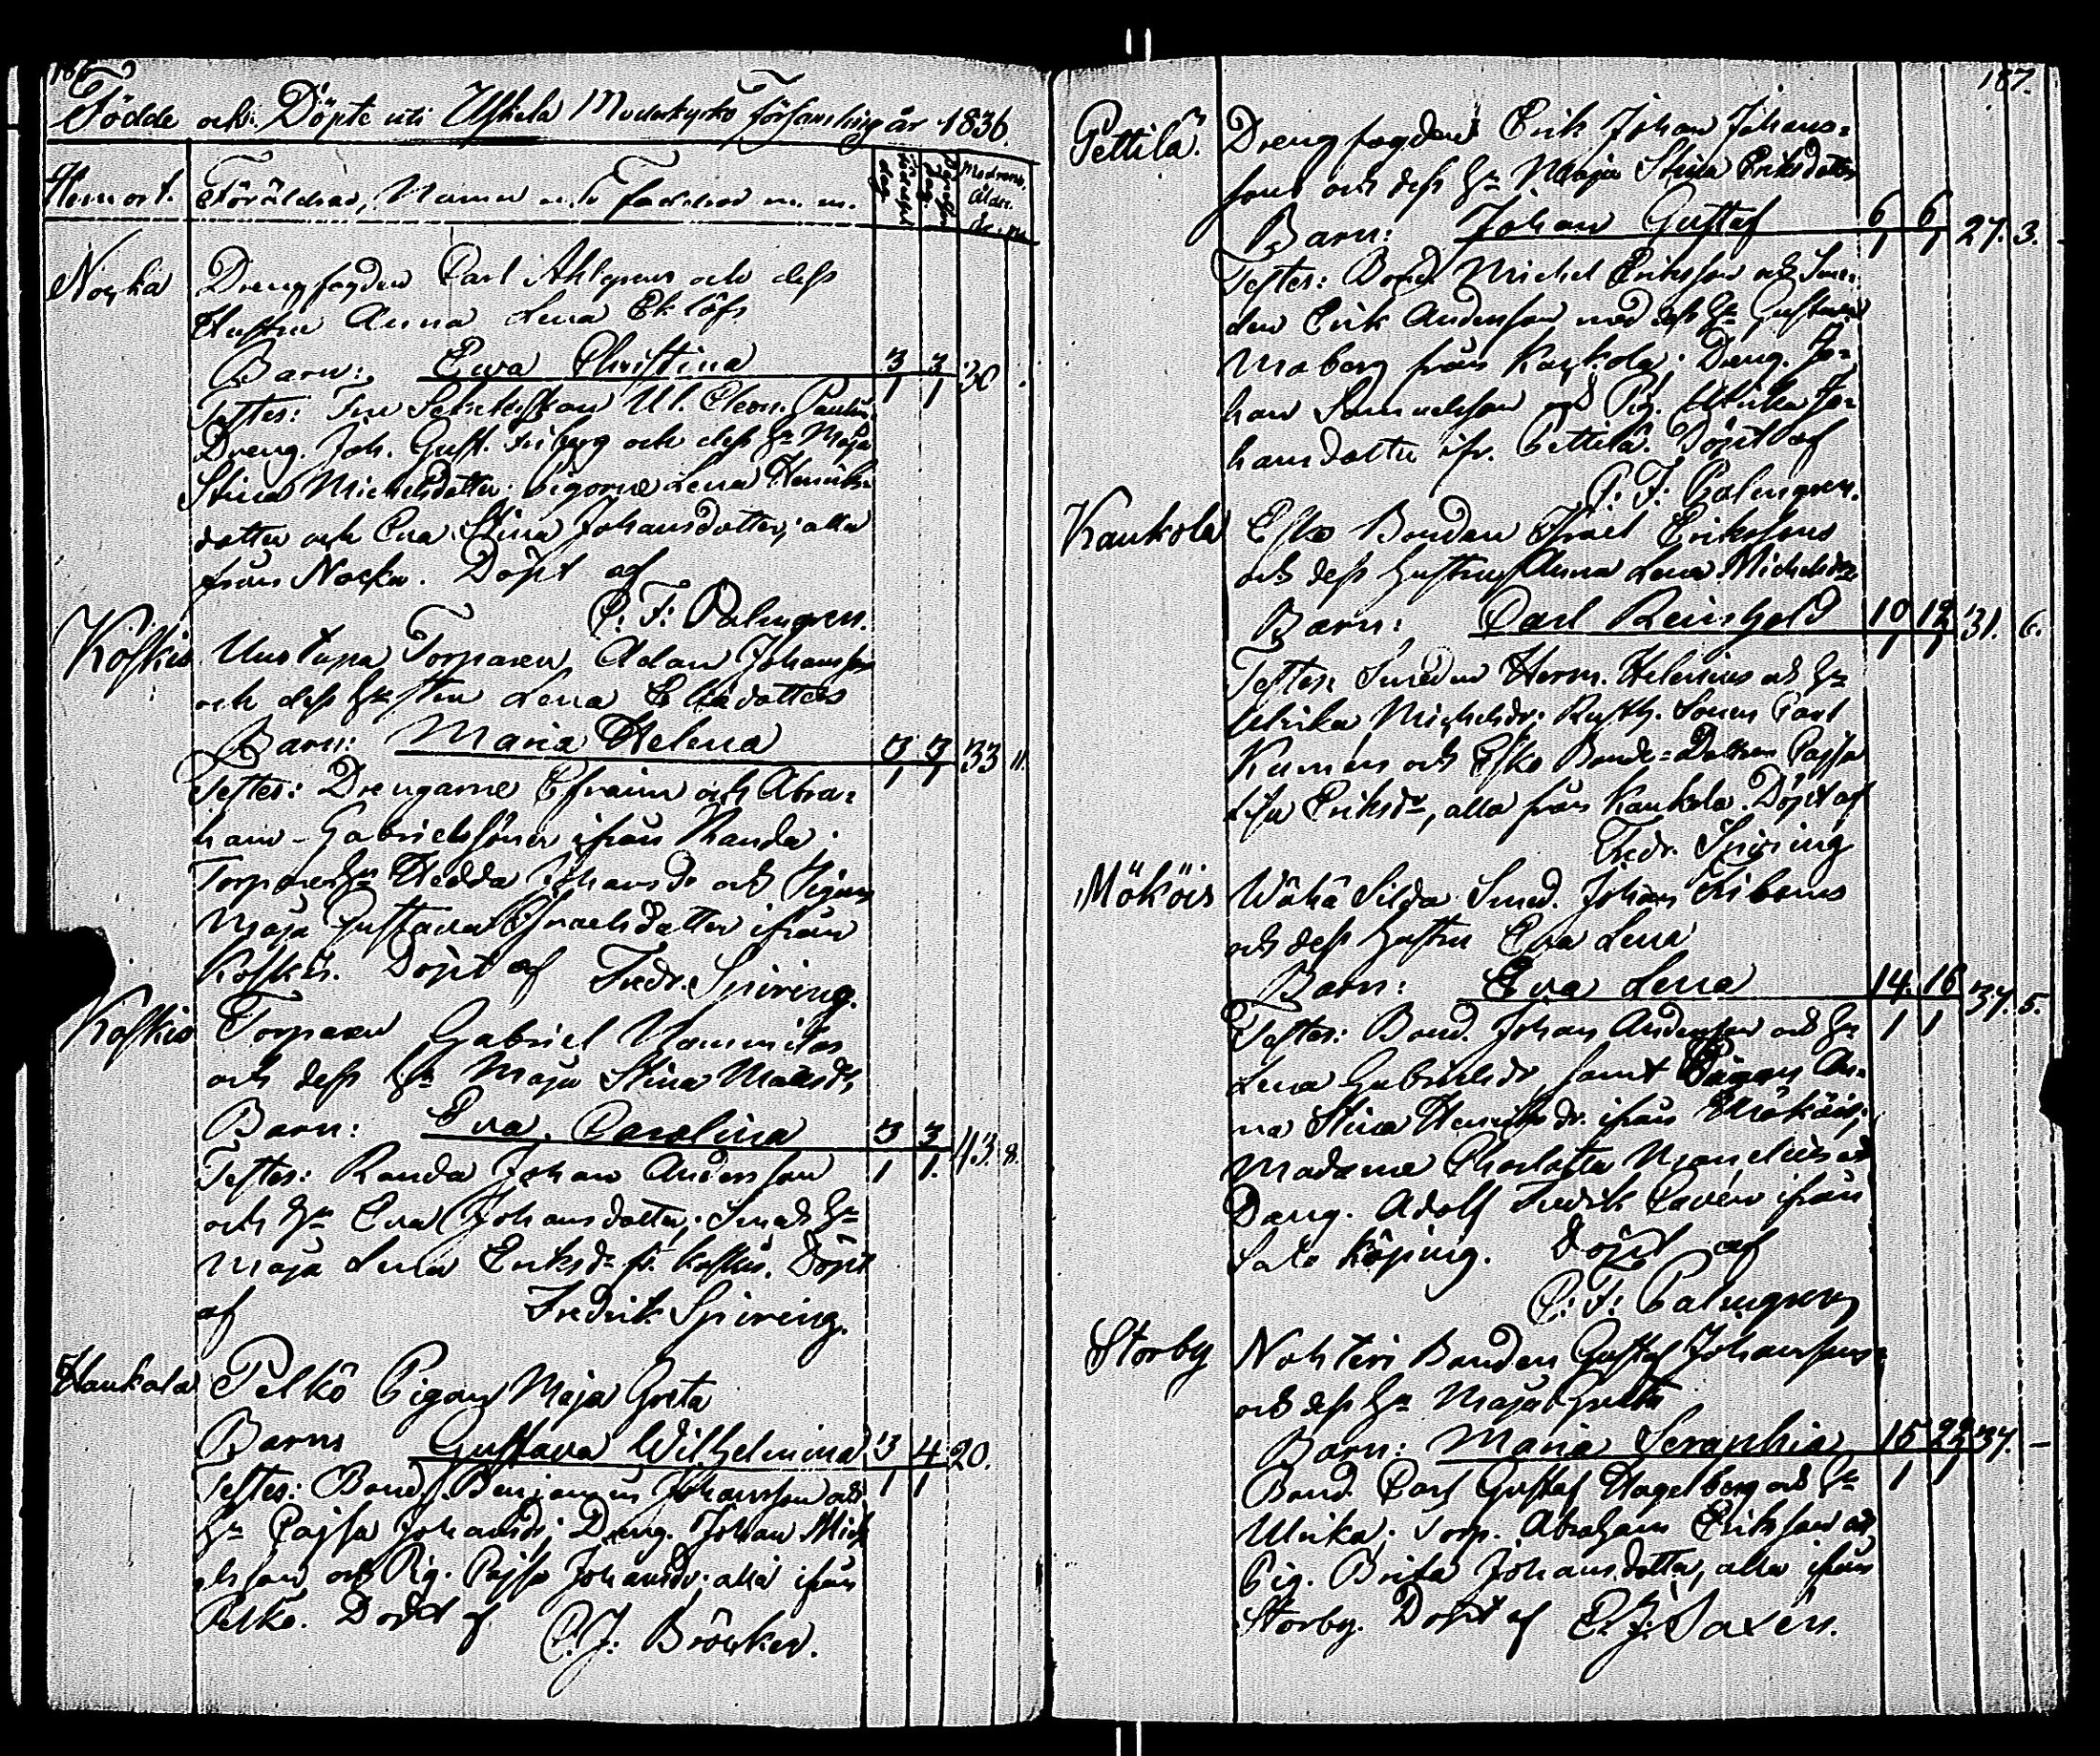 186
Födde och Döpte uti Uskela Moderkyrko Församling år 1836.
Hemort. Föräldrar, Namn och Faddrar m. m. Födelse dag Döpelse dag Modrens Ålder
Nocka Drengfogden Carl Ahlgrens och dess
Hustru Anna Lena Eklöfs
Barn: Ewa Christina 3/1 3/1 30
Testes: Ul. Eleon.
Dreng. Joh. Gust. Friberg och dess Hu Maja
Stina Michelsdotter; Pigorne Lena Henriks-
dotter och Eva Stina Johansdotter; alla
från Nocka. Döpt af
C. F: Palmgren.
Koskis Uustupa Torparen Adam Johansson
och dess Hustru Lena Eliædotters
Barn: Maria Helena 3/1 3/1 33 11.
Testes: Drengarne Efraim och Abra-
ham Gabrielssöner ifrån Randa;
Torparehu Hedda Johansdr och Pigan
Maja Gustava Israelsdotter ifrån
Koskis. Döpt af Fredr. Spiring.
Koskis Torparen Gabriel
och dess Hu Maja Stina Matsdr
Barn: Eva Carolina 3/1 3/1 43. 8.
Testes: Randa Johan Andersson
och Hu Eva Johansdotter; Smeds Hu
Maja Lena Eriksdr fr. Koskis. Döpt
af Fredrik Spiring.
Haukala Pelko Pigan Maja Greta
Barn Gustava Wilhelmina 3/1 4/1 20.
Testes: Bond. Benjamin Johansson och
Hu Cajsa Johansdr; Dreng. Johan Mich-
elsson och Pig. Cajsa Johansdr; alla ifrån
Pelko. Döpt af C. J: Bröcker.
187.
Pettilä. Drengfogden Erik Johan Johans-
sons och dess Hu Maja Stina Eriksdotter
Barn: Johan Gustaf 6/1 6/1 27. 3.
Testes: Bond. Michel Eriksson och Sme-
den Erik Andersson med dess Hu Gustava
Moberg från Kaukola; Dreng. Jo-
han Samuelsson och Pig. Ulrika Jo-
hansdotter ifr. Pettilä. Döpt af
C. F: Palmgren.
Kaukola Esko Bonden Israel Erikssons
och dess hustrus Anna Lena Michelsdr
Barn: Carl Reinhold 10/1 12/1 31. 6.
Testes: Smeden Herm. Helenius och Hu
Ulrika Michelsdr; Rusth. Sonen Carl
och Esko Bonde-Dottren Cajsa
Lisa Eriksdr, alla från Kaukola. Döpt af
Fredr. Spiring
Mököis Wähä Silda Smed. Johan Fribergs
och dess hustru Eva Lena
Barn: Eva Lena 14./1 16/1 37. 5.
Testes: Bond. Johan Andersson och Hu
Lena Gabrielsdr, samt Pigan An-
na Stina Henriksdr. ifrån Mököis;
Madame Charlotta Mandelius och
Dreng. Adolf Fredrik Cavén ifrån
Salo Köping. Döpt af
C: F: Palmgren
Storby Nohteri Bonden Gustaf Johanssons
och dess Hu Maja Greta
Barn: Maria Seraphia 15/1 22/1 37. —
Bond. Carl Gustaf Hagelberg och Hu
Ulrika; Torp. Abraham Eriksson och
Pig. Brita Johansdotter, alla ifrån
Storby. Döpt af C. J: Saxén.